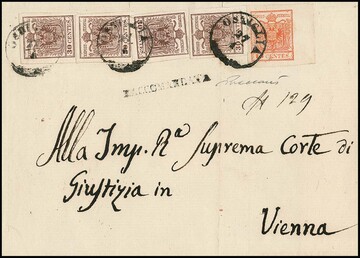 30 CENTES
RACCOMANDATA
N 129
Alla Imp. Rª Suprema Corte di
Giustizia in
Vienna